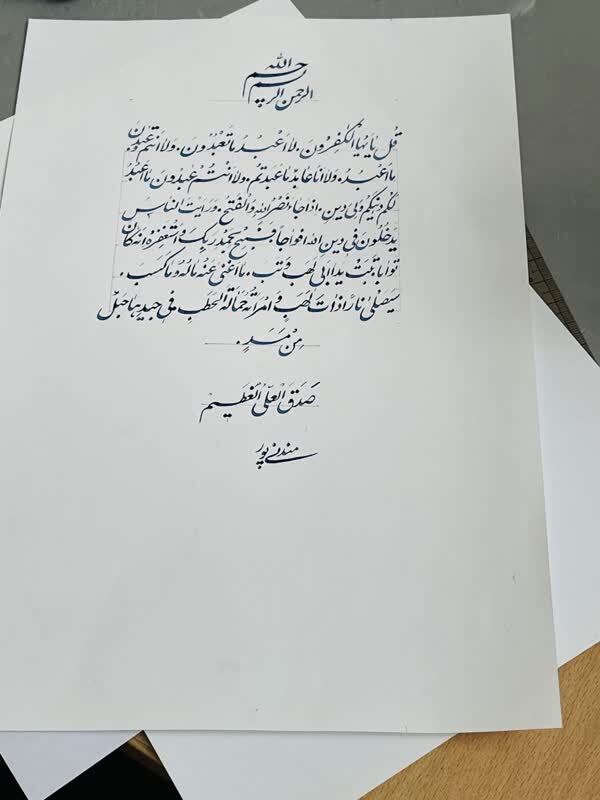 بسم الله
الرحمن الرحیم
قُل یٰاَیُّهَا الکٰفِرُونَ. لا اَعْبُدُ ما تَعْبُدُونَ. وَلا اَنتُم عٰبِدُونَ
ما اَعْبُدُ. وَلا اَنَا عابِدٌ ما عَبَدتُم. ولا اَنْتُمْ عٰبِدُونَ ما اَعْبُدُ
لَکُم دینُکُم وَلِیَ دینِ. اِذا جاءَ نَصْرُ اللهِ وَالْفَتْحُ. وَرَاَیتَ النّاسَ
یَدخُلُونَ فی دینِ اللهِ افواجاً. فَسَبِّح بِحَمْدِ رَبِّکَ وَاسْتَغْفِرْهُ اِنَّهُ کانَ
تَوّاباً تَبَّتْ یَدا اَبی لَهَبٍ وَتَبَّ. ما اَغْنیٰ عَنْهُ مالُهُ وَما کَسَبَ.
سَیَصْلیٰ ناراً ذاتَ لَهَبٍ وَامْرَاَتُهُ حَمّالَةَ الحَطَبِ فی جیدِها حَبْلٌ
مِنْ مَسَدٍ.
صَدَقَ الْعَلِیُّ الْعَظیم
مندنی‌پور